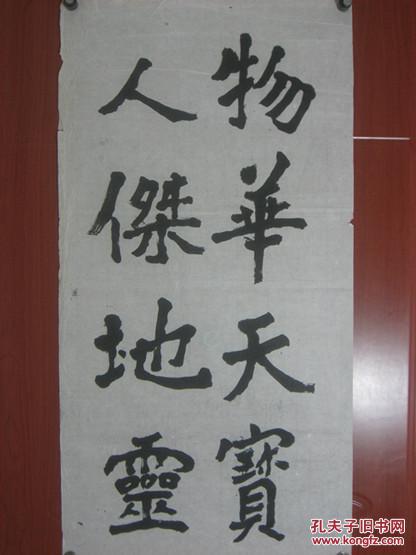 物華天寶
人傑地靈
孔夫子旧书网